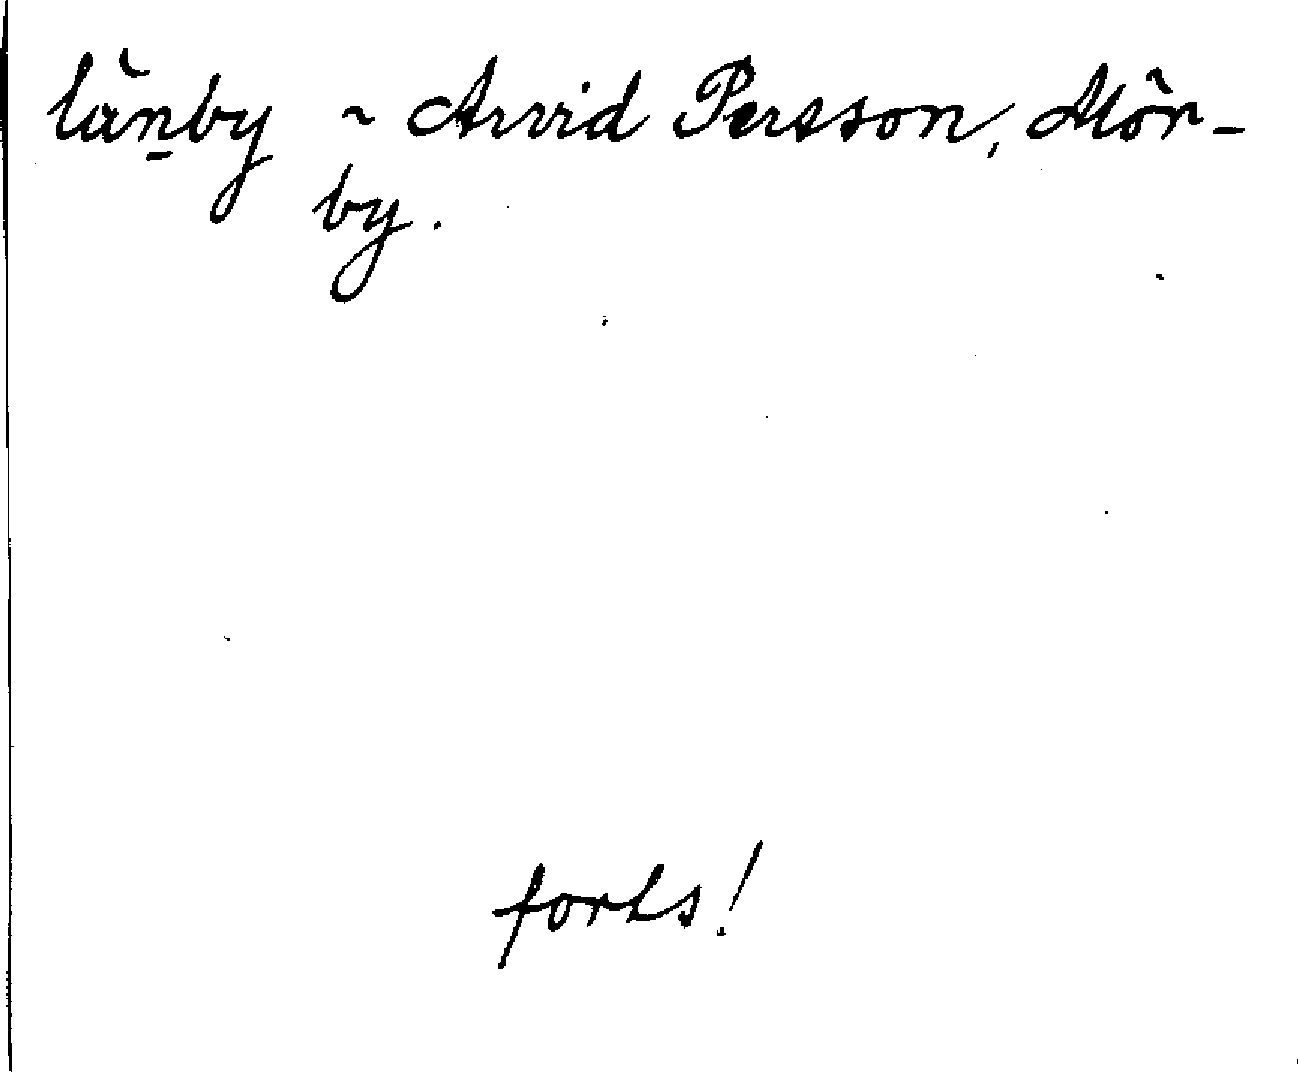 lăṉby ~ Arvid Persson, Mör-
by.
forts!